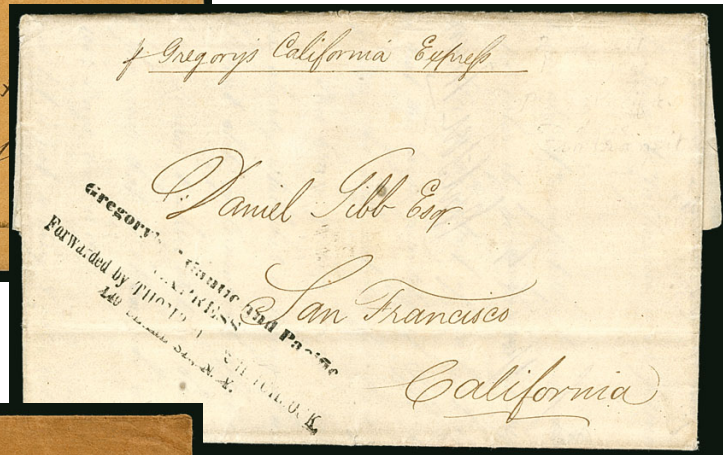 pr Gregory's California Express
Daniel Gibb Esqr
San Francisco
California
Gregory's Atlantic and Pacific
EXPRESS
Forwarded by THOMPSON & HITCHCOCK,
ST., N. Y.